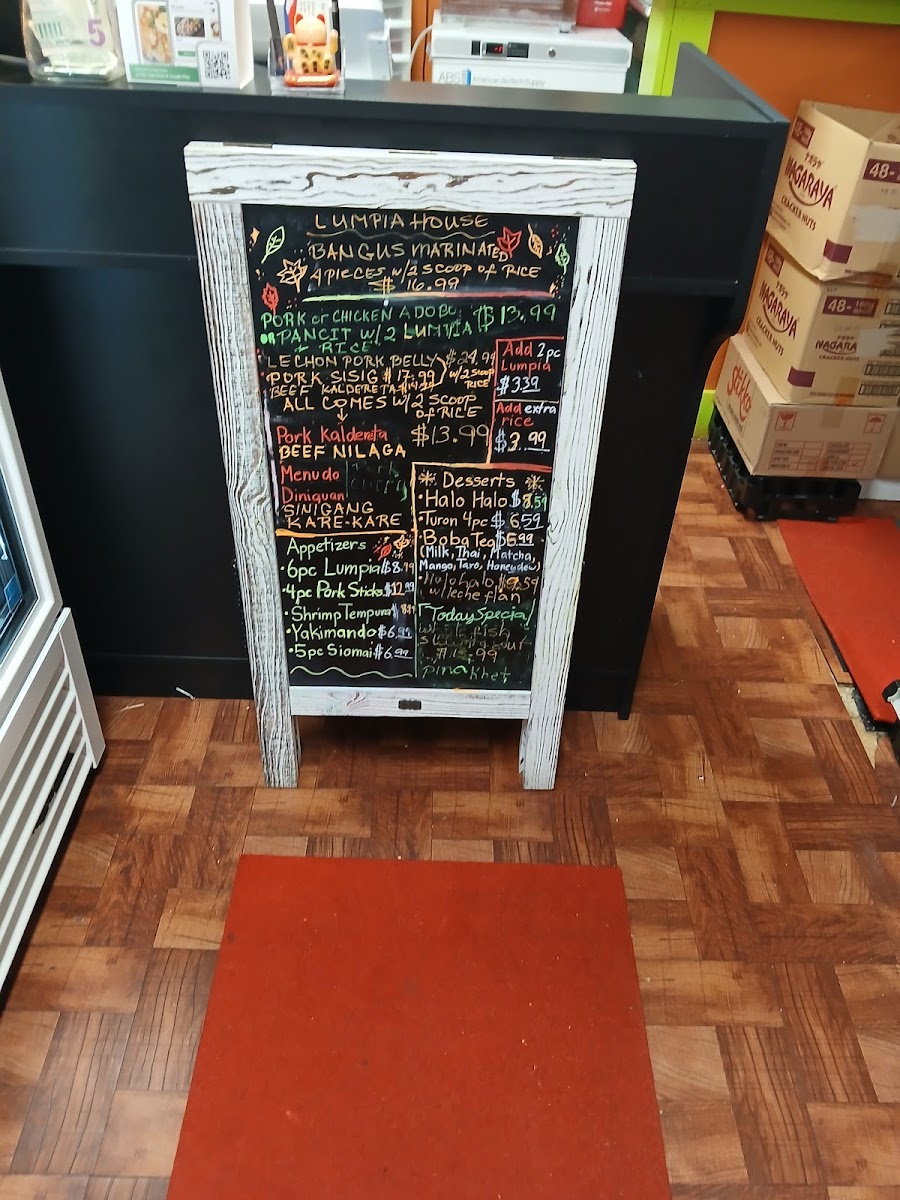 5
ABS American BioTech Supply
LUMPIA HOUSE
BANGUS MARINATED
4 PIECES w/2 SCOOP OF RICE
$16.99
PORK or CHICKEN ADOBO $13.99
OR PANCIT W/2 LUMPIA
+ RICE
LECHON PORK BELLY $24.99
PORK SISIG $17.99 w/2 SCOOP
BEEF KALDERETA RICE
ALL COMES W/2 SCOOP
OF RICE
Add 2pc
Lumpia
$3.39
Add extra
rice
$3.99
Pork Kaldereta $13.99
BEEF NILAGA
Menudo
Diniquan
SINIGANG
KARE-KARE
Appetizers
•6pc Lumpia
•4pc Pork Sticks $12.99
•Shrimp Tempura
•Yakimando $6.99
•5pc Siomai $6.99
Desserts
•Halo Halo $8.59
•Turon 4pc $6.59
•Boba Tea $6.99
(Milk, Thai, Matcha,
Mango, Taro, Honeydew)
w/leche flan
Today Special
fish
NAGARAYA
CRACKER NUTS
48
NAGARAYA
CRACKER NUTS
48
NAGARAYA
CRACKER NUTS